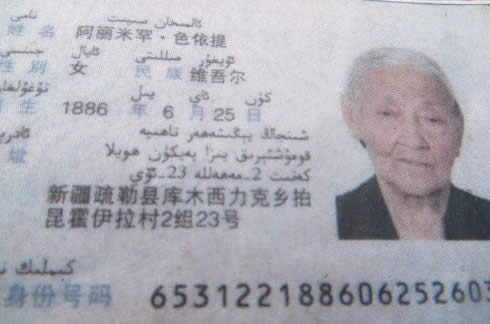 نامى ئالىمىخان سىيىت
姓名 阿丽米罕·色依提
جىنسى ئايال مىللىتى ئۇيغۇر
性别 女 民族 维吾尔
يىل ئاي كۈن
生 1886 年 6 月 25 日
شىنجاڭ يېڭىشەھەر ناھىيە
يېزا پەيكۈن ھويلا
كەنت 2-مەھەللە 23-ئۆي
址 新疆疏勒县库木西力克乡拍
昆霍伊拉村2组23号
كىملىك
身份号码 65312218860625260